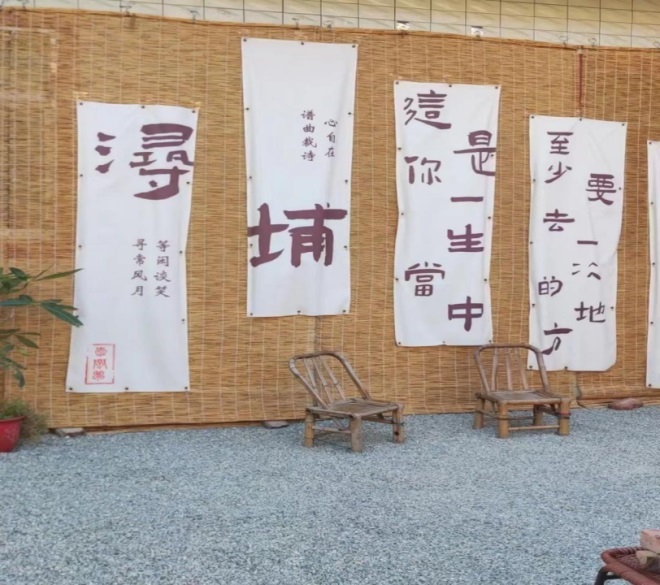 潯
寻常风月
等闲谈笑
谱曲裁诗
心自在
埔
這是你一生當中
至少要去一次的地方